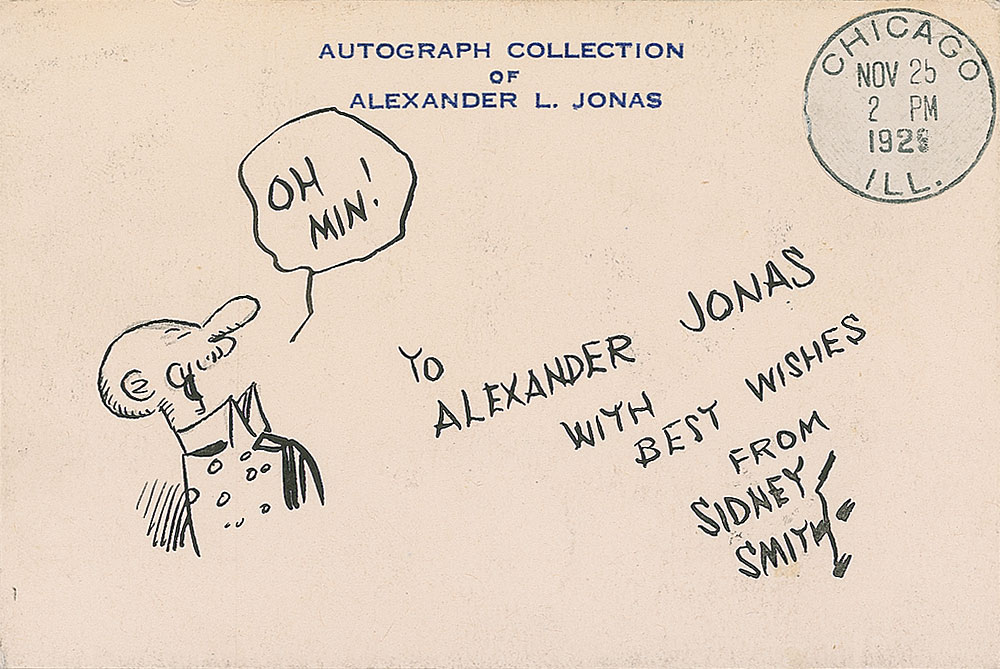 AUTOGRAPH COLLECTION
OF
ALEXANDER L. JONAS
CHICAGO
NOV 25
2 PM
ILL.
OH
MIN!
TO
ALEXANDER JONAS
WITH
BEST WISHES
FROM
SIDNEY
SMITH